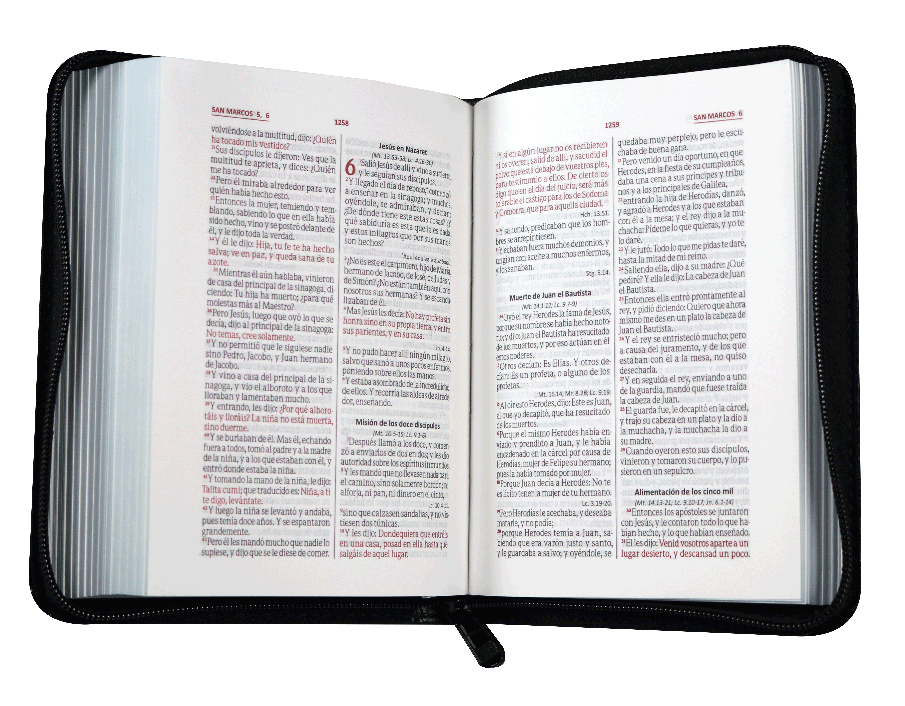 SAN MARCOS 5, 6
1258
volviéndose a la multitud, dijo: ¿Quién
ha tocado mis vestidos?
31Sus discípulos le dijeron: Ves que la
multitud te aprieta, y dices: ¿Quién
me ha tocado?
32Pero él miraba alrededor para ver
quién había hecho esto.
33Entonces la mujer, temiendo y tem-
blando, sabiendo lo que en ella había
sido hecho, vino y se postró delante de
él, y le dijo toda la verdad.
34Y él le dijo: Hija, tu fe te ha hecho
salva; ve en paz, y queda sana de tu
azote.
35Mientras él aún hablaba, vinieron
de casa del principal de la sinagoga, di-
ciendo: Tu hija ha muerto; ¿para qué
molestas más al Maestro?
36Pero Jesús, luego que oyó lo que se
decía, dijo al principal de la sinagoga:
No temas, cree solamente.
37Y no permitió que le siguiese nadie
sino Pedro, Jacobo, y Juan hermano
de Jacobo.
38Y vino a casa del principal de la si-
nagoga, y vio el alboroto y a los que
lloraban y lamentaban mucho.
39Y entrando, les dijo: ¿Por qué alboro-
táis y lloráis? La niña no está muerta,
sino duerme.
40Y se burlaban de él. Mas él, echando
fuera a todos, tomó al padre y a la madre
de la niña, y a los que estaban con él, y
entró donde estaba la niña.
41Y tomando la mano de la niña, le dijo:
Talita cumi; que traducido es: Niña, a ti
te digo, levántate.
42Y luego la niña se levantó y andaba,
pues tenía doce años. Y se espantaron
grandemente.
43Pero él les mandó mucho que nadie lo
supiese, y dijo que se le diese de comer.
Jesús en Nazaret
(Mt. 13.53-58; Lc. 4.16-30)
6 1Salió Jesús de allí y vino a su tierra,
y le seguían sus discípulos.
2Y llegado el día de reposo, comenzó
a enseñar en la sinagoga; y muchos,
oyéndole, se admiraban, y decían:
¿De dónde tiene este estas cosas? ¿Y
qué sabiduría es esta que le es dada,
y estos milagros que por sus manos
son hechos?
3¿No es este el carpintero, hijo de María,
hermano de Jacobo, de José, de Judas y
de Simón? ¿No están también aquí con
nosotros sus hermanas? Y se escanda-
lizaban de él.
4Mas Jesús les decía: No hay profeta sin
honra sino en su propia tierra, y entre
sus parientes, y en su casa.
5Y no pudo hacer allí ningún milagro,
salvo que sanó a unos pocos enfermos,
poniendo sobre ellos las manos.
6Y estaba asombrado de la incredulidad
de ellos. Y recorría las aldeas de alrede-
dor, enseñando.
Misión de los doce discípulos
(Mt. 10.5-15; Lc. 9.1-6)
7Después llamó a los doce, y comen-
zó a enviarlos de dos en dos; y les dio
autoridad sobre los espíritus inmundos.
8Y les mandó que no llevasen nada para
el camino, sino solamente bordón; ni
alforja, ni pan, ni dinero en el cinto,
9sino que calzasen sandalias, y no vis-
tiesen dos túnicas.
10Y les dijo: Dondequiera que entréis
en una casa, posad en ella hasta que
salgáis de aquel lugar.
1259
SAN MARCOS 6
11Y si en algún lugar no os recibieren
ni os oyeren, salid de allí, y sacudid el
polvo que está debajo de vuestros pies,
para testimonio a ellos. De cierto os
digo que en el día del juicio, será más
tolerable el castigo para los de Sodoma
y Gomorra, que para aquella ciudad.
Hch. 13.51.
12Y saliendo, predicaban que los hom-
bres se arrepintiesen.
13Y echaban fuera muchos demonios, y
ungían con aceite a muchos enfermos,
y los sanaban.
Stg. 5.14.
Muerte de Juan el Bautista
(Mt. 14.1-12; Lc. 9.7-9)
14Oyó el rey Herodes la fama de Jesús,
porque su nombre se había hecho noto-
rio; y dijo: Juan el Bautista ha resucitado
de los muertos, y por eso actúan en él
estos poderes.
15Otros decían: Es Elías. Y otros de-
cían: Es un profeta, o alguno de los
profetas.
Mt. 16.14; Mr. 8.28; Lc. 9.19.
16Al oír esto Herodes, dijo: Este es Juan,
el que yo decapité, que ha resucitado
de los muertos.
17Porque el mismo Herodes había en-
viado y prendido a Juan, y le había
encadenado en la cárcel por causa de
Herodías, mujer de Felipe su hermano;
pues la había tomado por mujer.
18Porque Juan decía a Herodes: No te
es lícito tener a mujer de tu hermano.
Lc. 3.19-20.
19Pero Herodías le acechaba, y deseaba
matarle, y no podía;
20porque Herodes temía a Juan, sa-
biendo que era varón justo y santo,
y le guardaba a salvo; y oyéndole, se
quedaba muy perplejo, pero le escu-
chaba de buena gana.
21Pero venido un día oportuno, en que
Herodes, en la fiesta de su cumpleaños,
daba una cena a sus príncipes y tribu-
nos y a los principales de Galilea,
22entrando la hija de Herodías, danzó,
y agradó a Herodes y a los que estaban
con él a la mesa; y el rey dijo a la mu-
chacha: Pídeme lo que quieras, y yo te
lo daré.
23Y le juró: Todo lo que me pidas te daré,
hasta la mitad de mi reino.
24Saliendo ella, dijo a su madre: ¿Qué
pediré? Y ella le dijo: La cabeza de Juan
el Bautista.
25Entonces ella entró prontamente al
rey, y pidió diciendo: Quiero que ahora
mismo me des en un plato la cabeza de
Juan el Bautista.
26Y el rey se entristeció mucho; pero
a causa del juramento, y de los que
estaban con él a la mesa, no quiso
desecharla.
27Y en seguida el rey, enviando a uno
de la guardia, mandó que fuese traída
la cabeza de Juan.
28El guarda fue, le decapitó en la cárcel,
y trajo su cabeza en un plato y la dio a
la muchacha, y la muchacha la dio a
su madre.
29Cuando oyeron esto sus discípulos,
vinieron y tomaron su cuerpo, y lo pu-
sieron en un sepulcro.
Alimentación de los cinco mil
(Mt. 14.13-21; Lc. 9.10-17; Jn. 6.1-14)
30Entonces los apóstoles se juntaron
con Jesús, y le contaron todo lo que ha-
bían hecho, y lo que habían enseñado.
31Él les dijo: Venid vosotros aparte a un
lugar desierto, y descansad un poco.